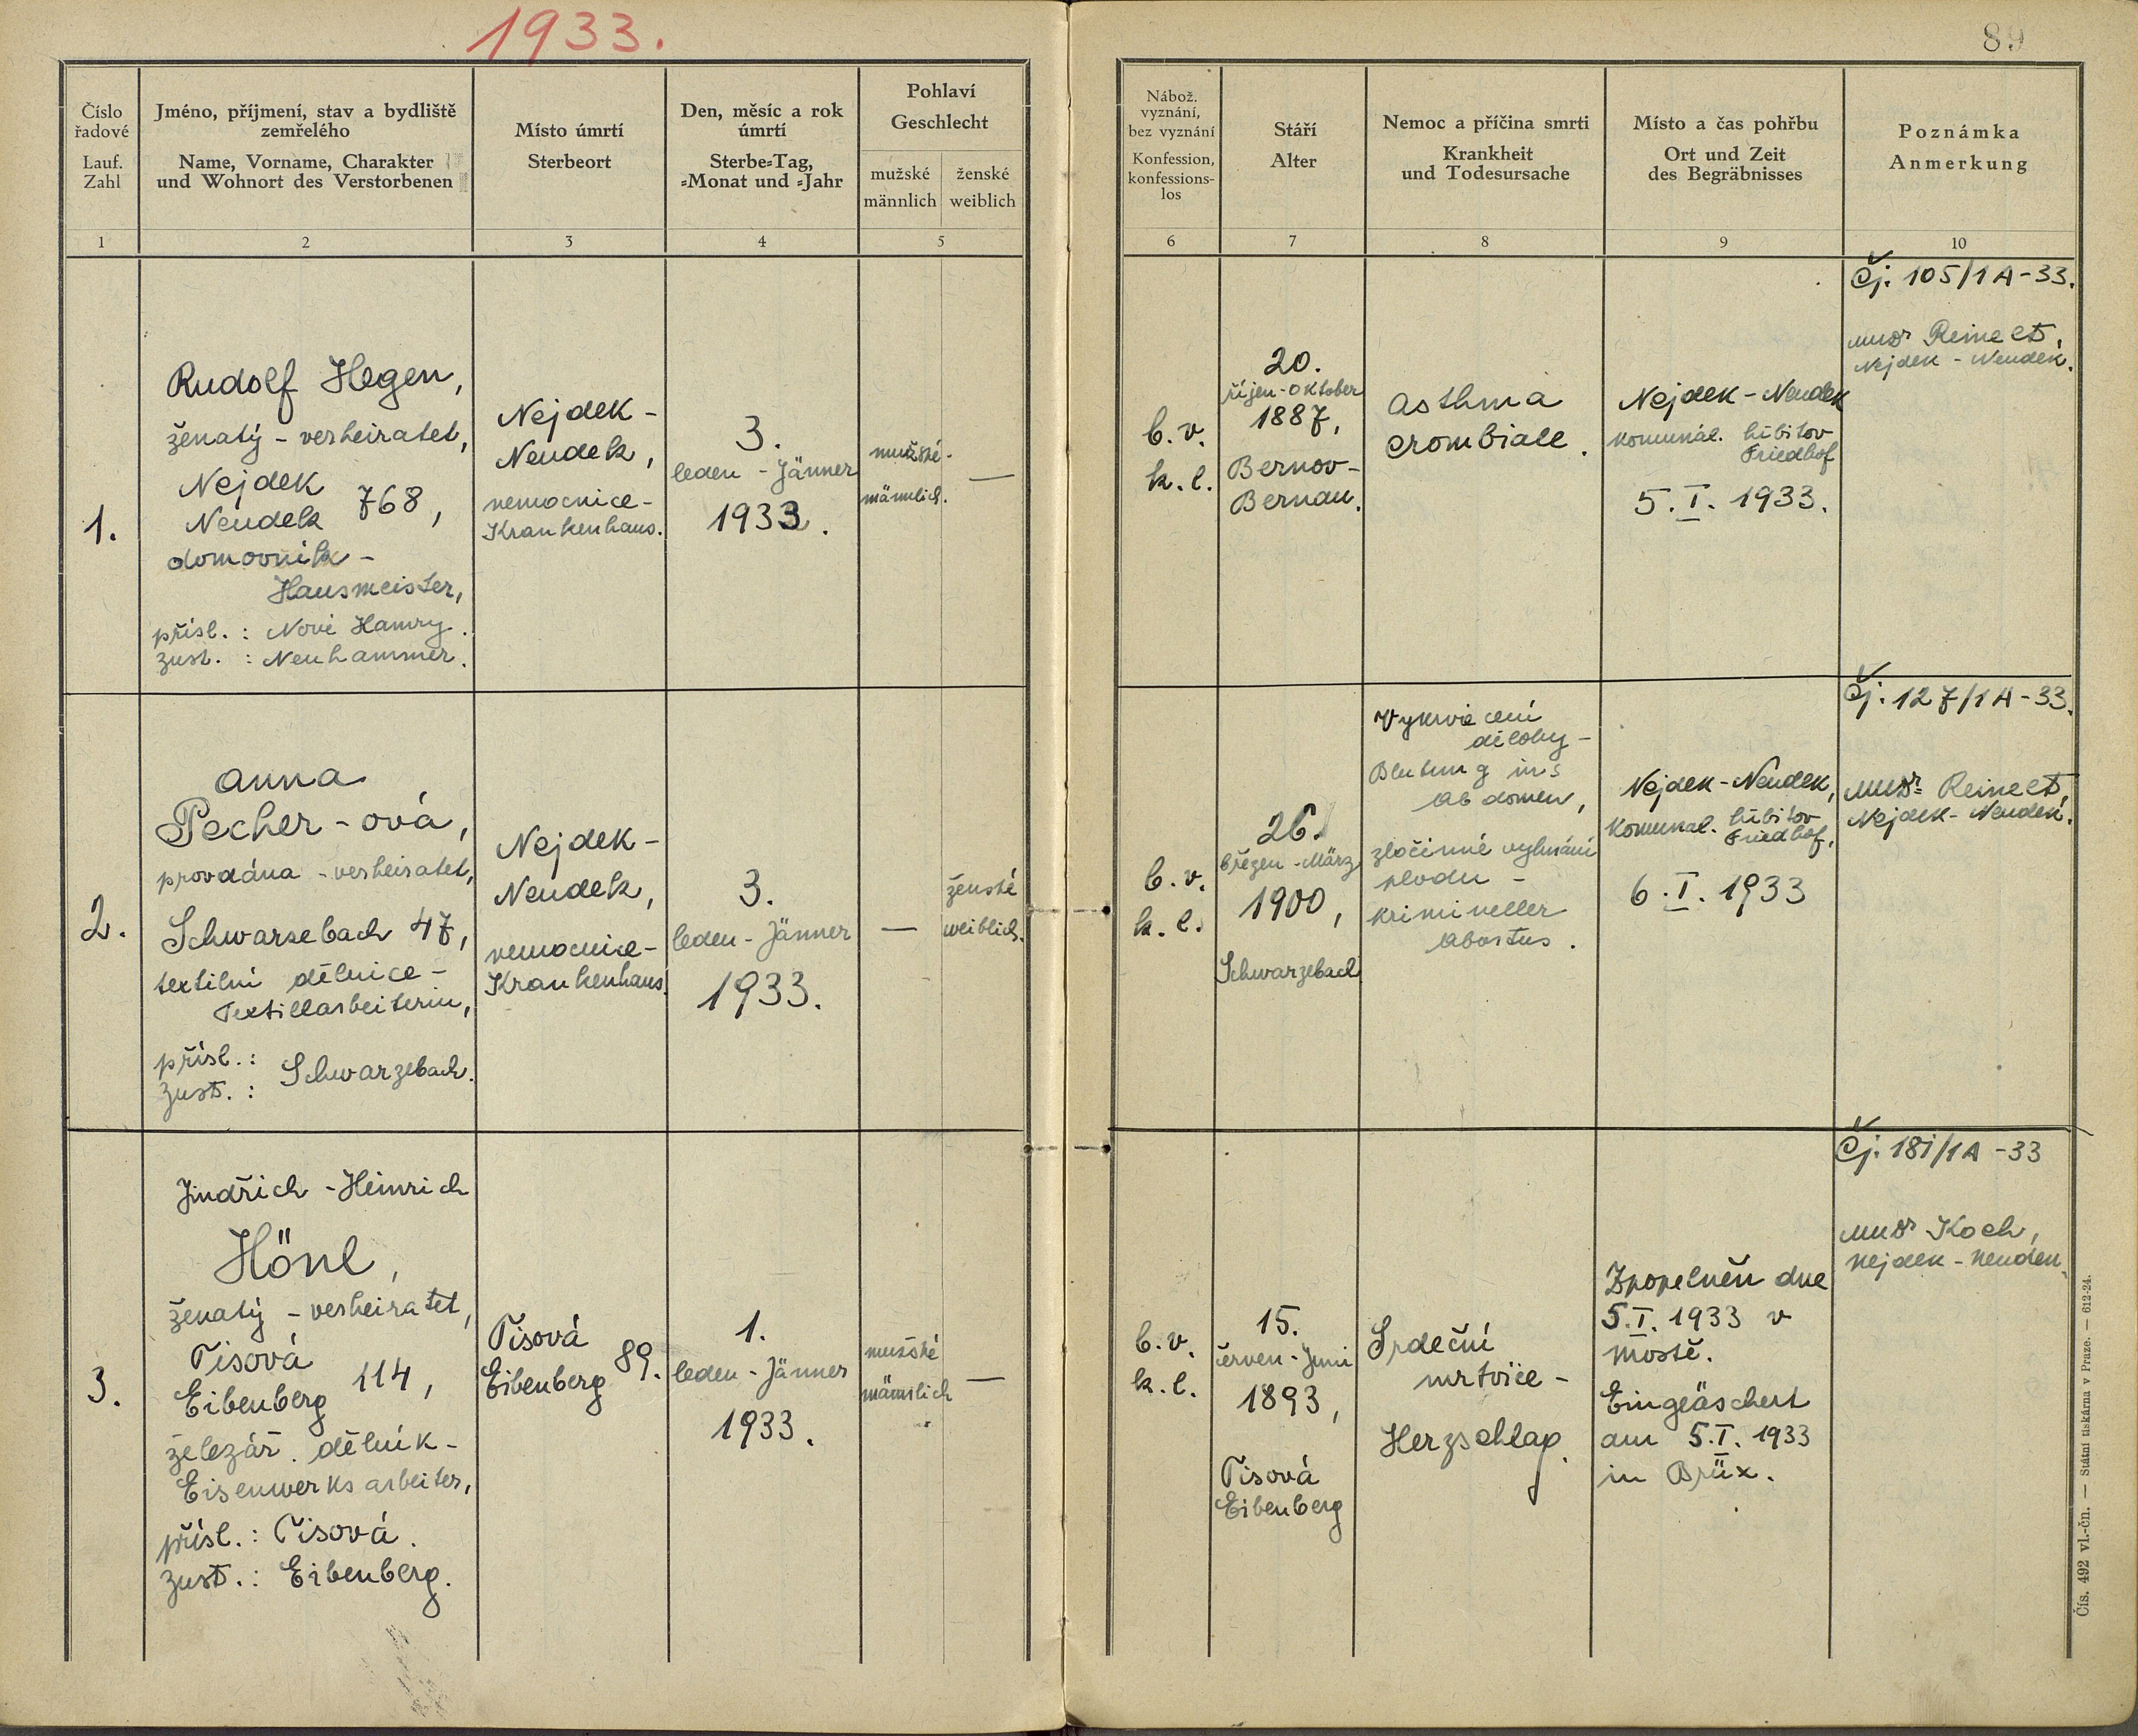 1933.
89
Číslo
řadové
Lauf.
Zahl
Jméno, příjmení, stav a bydliště
zemřelého
Name, Vorname, Charakter
und Wohnort des Verstorbenen
Místo úmrtí
Sterbeort
Den, měsíc a rok
úmrtí
Sterbe=Tag,
=Monat und =Jahr
Pohlaví
Geschlecht
mužské
männlich
ženské
weiblich
Nábož.
vyznání,
bez vyznání
Konfession,
konfessions-
los
Stáří
Alter
Nemoc a příčina smrti
Krankheit
und Todesursache
Místo a čas pohřbu
Ort und Zeit
des Begräbnisses
Poznámka
Anmerkung
1
2
3
4
5
6
7
8
9
10
1.
Rudolf Hegen,
ženatý - verheiratet,
Nejdek
Neudek 768,
domovník -
Hausmeister,
přísl. : Nové Hamry.
zust. : Neuhammer.
Nejdek -
Neudek,
nemocnice -
Krankenhaus.
3.
leden - Jänner
1933.
mužské -
männlich.
—
b. v.
k. l.
20.
říjen - Oktober
1887,
Bernov -
Bernau.
Asthma
crombiale.
Nejdek - Neudek
komunál. hřbitov
Friedhof
5. I. 1933.
Čj. 105/1A-33.
MUDr Reinelt,
Nejdek - Neudek.
2.
Anna
Pecher - ová,
provdána - verheiratet,
Schwarzebach 47,
textilní dělnice -
Textillarbeiterin,
přísl. :
zust. : Schwarzebach.
Nejdek -
Neudek,
nemocnice -
Krankenhaus.
3.
leden - Jänner
1933.
—
ženské
weiblich.
b. v.
k. l.
26.
březen - März
1900,
Schwarzebach
Vykrvácení
dělohy -
Blutung ins
Abdomen,
zločinné vyhnání
plodu -
krimineller
Abortus.
Nejdek - Neudek,
Komunal. hřbitov
Friedhof,
6. I. 1933
Čj. 127/1A-33.
MUDr Reinelt,
Nejdek - Neudek.
3.
Jindřich - Heinrich
Hönl,
ženatý - verheiratet,
Tisová
Eibenberg 114,
železář. dělník -
Eisenwerksarbeiter,
přísl. : Tisová.
zust. : Eibenberg.
Tisová
Eibenberg 89.
1.
leden - Jänner
1933.
mužské
männlich
—
b. v.
k. l.
15.
červen - Juni
1893,
Tisová
Eibenberg
Srdeční
mrtvice -
Herzschlag.
Zpopelněn dne
5. I. 1933 v
Mostě.
Eingeäschert
am 5. I. 1933
in Brüx.
Čj. 181/1A-33
MUDr Koch,
Nejdek - Neudek.
Čís. 492 vl.-čn. — Státní tiskárna v Praze. — 612-24.